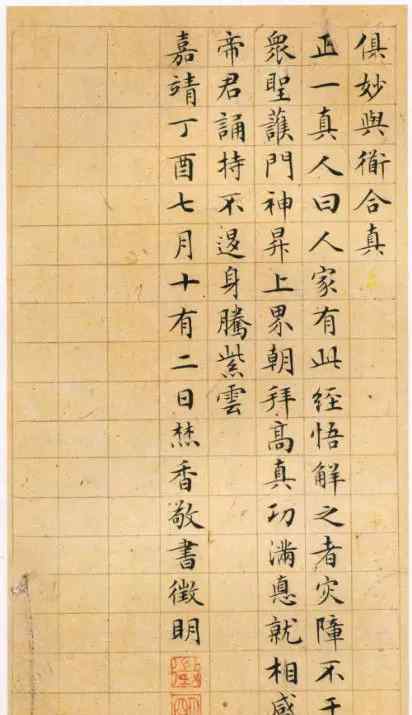 俱妙與衜合真
正一真人曰人家有此經悟解之者灾障不干
衆聖護門神昇上界朝拜髙真功滿惪就相感
帝君誦持不退身騰紫雲
嘉靖丁酉七月十有二日焚香敬書徵眀